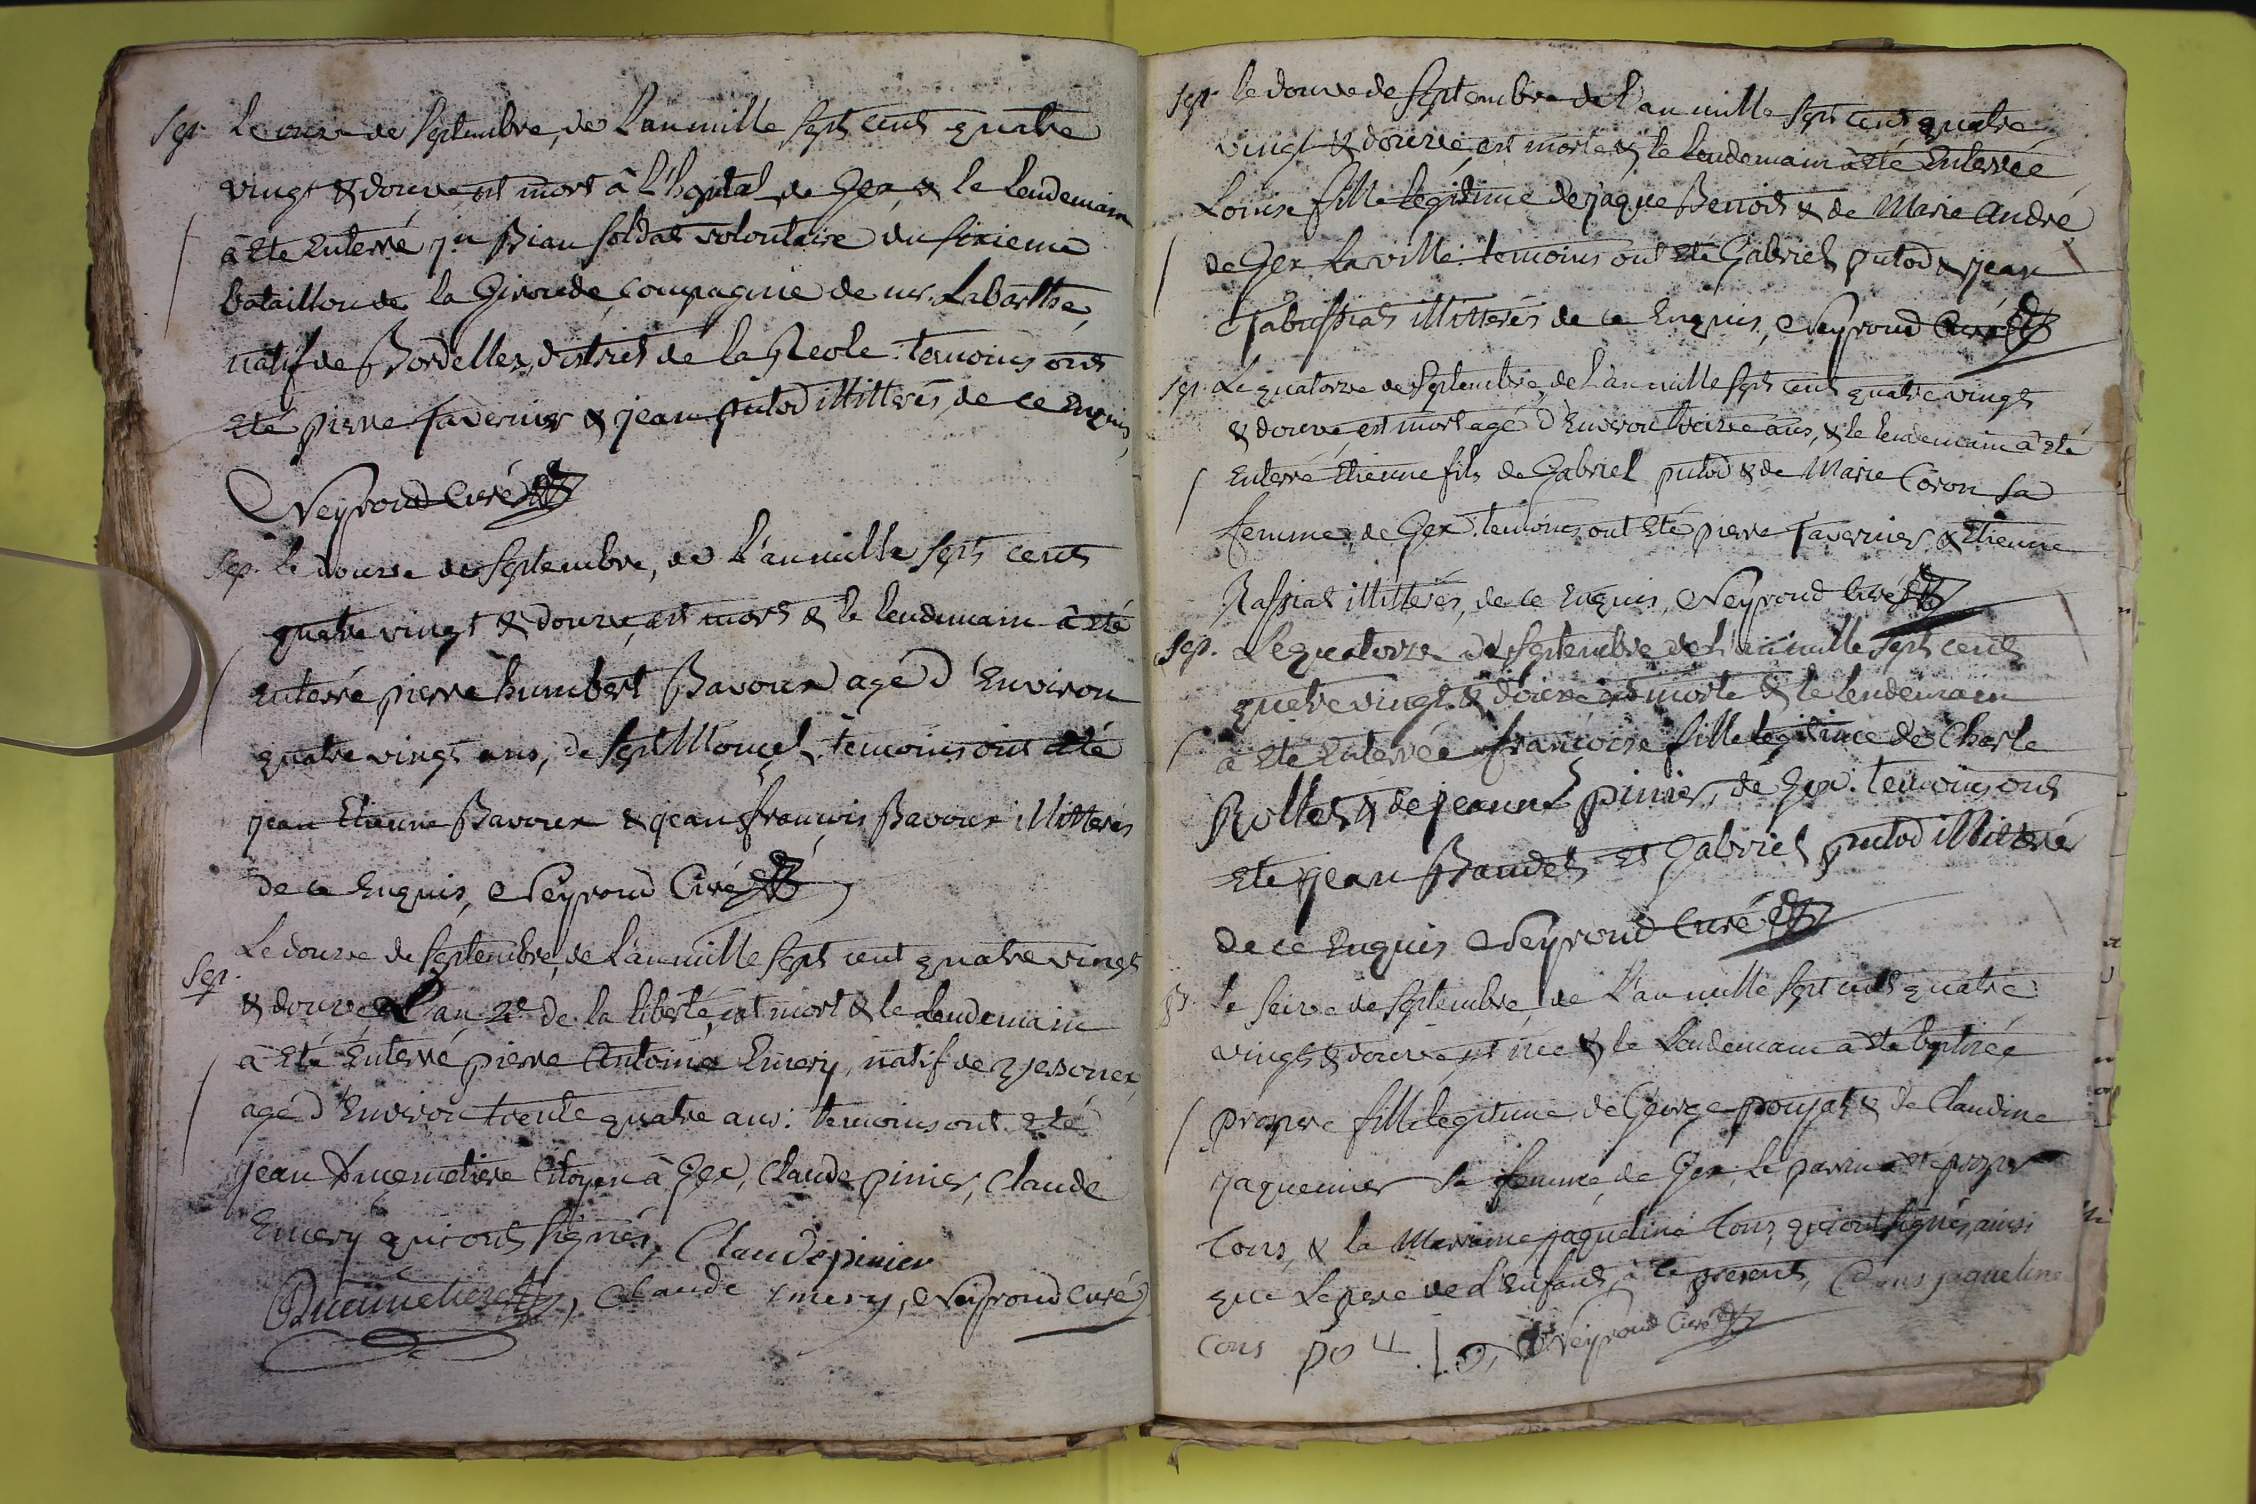 Sep. Le onze de Septembre, de L'an mille Sept cent quatre
vingt & douze, est mort à L'hopital de Gex, & le lendemain
à Eté Enterré jn Bian soldat volontaire du sixieme
bataillon de la Gironde, compagnie de mr. Labarthe,
natif de Bordelles, district de la Reole. temoins ont
Eté pierre favernier & jean putod illitterés, de ce Enquis,
Neyroud Curé
Sep. Le douze de Septembre, de L'an mille Sept cent
quatre vingt & douze, est mort & le lendemain à eté
enterré pierre humbert Bavoux agé d'Environ
quatre vingt ans, de Sept Moncel. temoins ont eté
jean Etienne Bavoux & jean françois Bavoux illitterés
de ce Enquis, Neyroud Curé
Sep. Le douze de Septembre, de L'an mille Sept cent quatre vingt
& douze, & L'an 4e de la liberté, est mort & le lendemain
à Eté Enterré pierre Antoine Emery, natif de
agé d'Environ trente quatre ans: temoins ont Eté
jean Ducimetiere Citoyen à Gex, Claude pinier, Claude
Emery qui ont signés, Claude pinier
Ducimetiere, Claude emery, Neyroud Curé
Sep. le douze de Septembre de L'an mille Sept cent quatre
vingt & douze, est morte & le lendemain à eté Enterrée
Louise fille legitime de jaque Benoit & de Marie André
de Gex La ville. temoins ont Eté Gabriel putod & jean
illitterés de ce Enquis, Neyroud Curé
Sep. Le quatorze de Septembre, de L'an mille Sept cent quatre vingt
& douze, est mort agé d'Environ treize ans, & le lendemain à Eté
Enterré Etienne fils de Gabriel putod & de Marie Coron sa
femme, de Gex. temoins ont Eté pierre favernier & Etienne
Raffiat illitterés, de ce Enquis, Neyroud Curé
Sep. Le quatorze de Septembre de L'an mille Sept cent
quatre vingt & douze est morte & le lendemain
à Eté Enterrée françoise fille legitime de Charle
Rollet & de jeanne pinier, de Gex. temoins ont
Eté jean Baudet Et Gabriel putod illitteré
de ce Enquis Neyroud Curé
B. le seize de Septembre, de L'an mille Sept cent quatre
vingt & douze, est née & le Lendemain à Eté baptisée
prospere fille legitime de George poujat & de Claudine
jaquemier sa femme, de Gex, Le parrin à Eté prosper
Cons, & la Marraine jaqueline Cons, qui ont signés, ainsi
que Le pere de l'Enfant, à ce present, Cons jaqueline
Cons Neyroud Curé